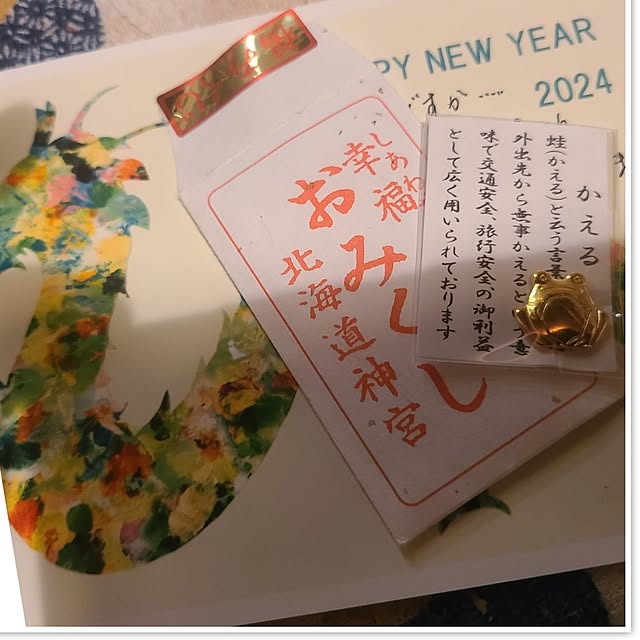 PY NEW YEAR
2024
ですか……
幸
しあわ
福
おみくし
北海道神宮
かえる
蛙(かえる)と云う言葉
外出先から無事かえるとう意
味で交通安全、旅行安全の御利益
として広く用いられております